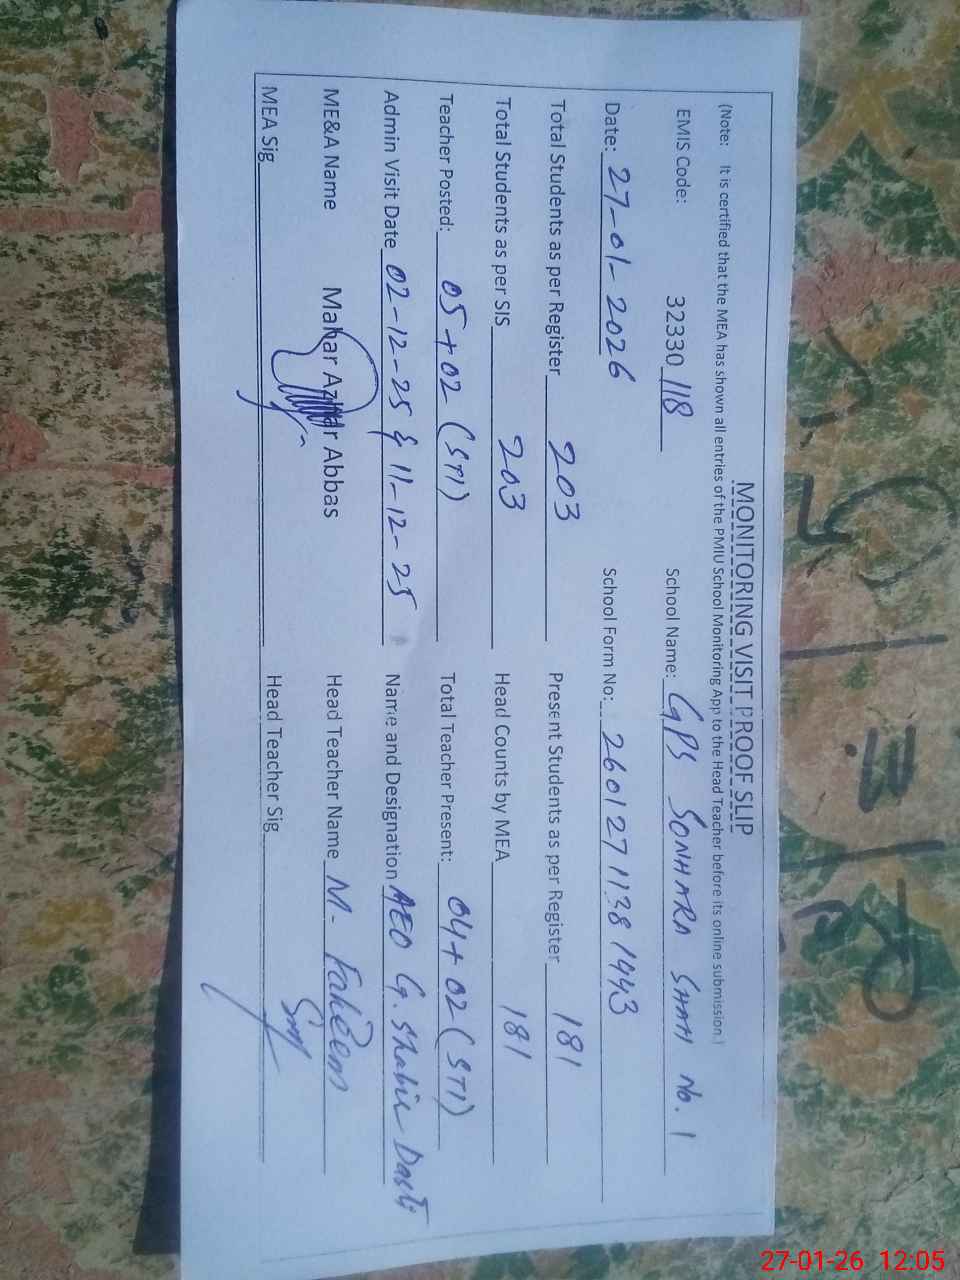 MONITORING VISIT PROOF SLIP
(Note: It is certified that the MEA has shown all entries of the PMIU School Monitoring App to the Head Teacher before its online submission.)
EMIS Code: 32330 118 School Name: GPS SONHARA SHAH No. 1
Date: 27-01-2026 School Form No: 260127 1138 1443
Total Students as per Register 203 Present Students as per Register 181
Total Students as per SIS 203 Head Counts by MEA 181
Teacher Posted: 05+02 (STI) Total Teacher Present: 04+02 (STI)
Admin Visit Date 02-12-25 & 11-12-25 Name and Designation AEO G. Shabir Dasti
ME&A Name Mahar Azhar Abbas Head Teacher Name M. Faheem
MEA Sig Head Teacher Sig
27-01-26 12:05